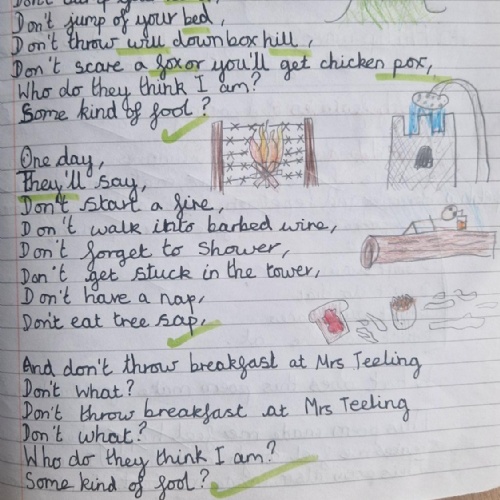 Don't jump of your bed,
Don't throw will down box hill,
Don't scare a fox or you'll get chicken pox,
Who do they think I am?
Some kind of fool?
One day,
They'll say,
Don't start a fire,
Don't walk into barbed wire,
Don't forget to shower,
Don't get stuck in the tower,
Don't have a nap,
Don't eat tree sap,
And don't throw breakfast at Mrs Teeling
Don't what?
Don't throw breakfast at Mrs Teeling
Don't what?
Who do they think I am?
Some kind of fool?